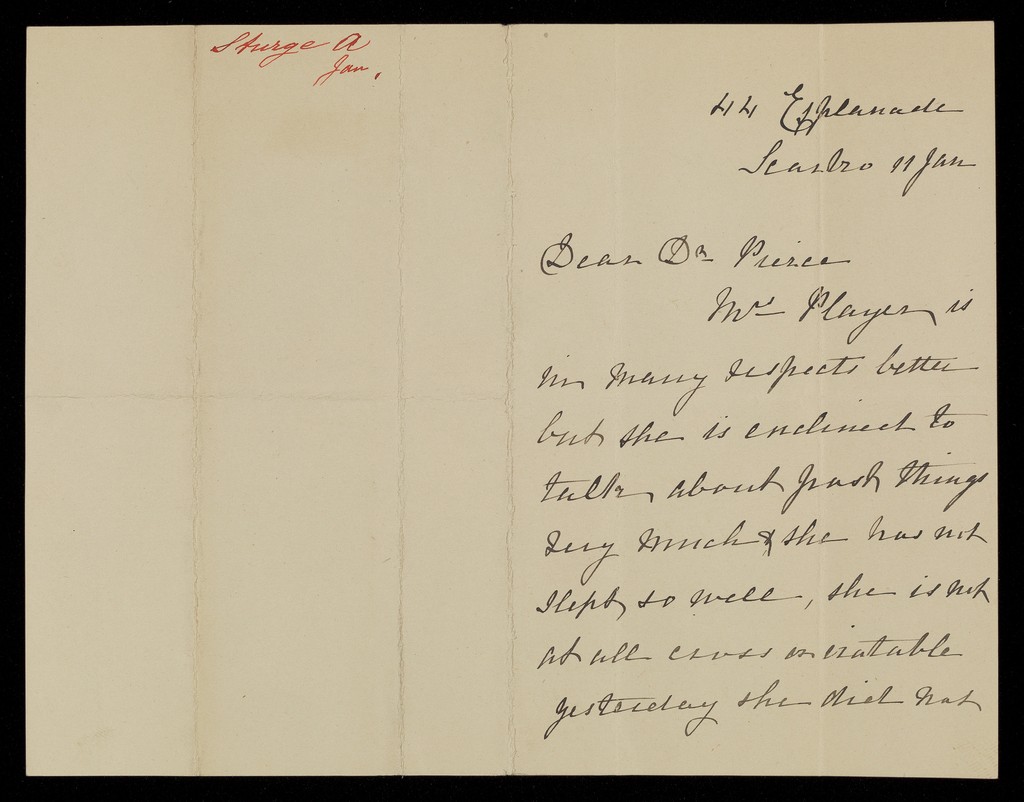 Sturge A
Jan,
44 Esplanade
Scarbro 11 Jan
Dear Dr Pierce
Mrs Player is
in many respects better
but she is enclined to
talk about past things
very much & she has not
slept so well, she is not
at all cross or iratable
yesterday she did not